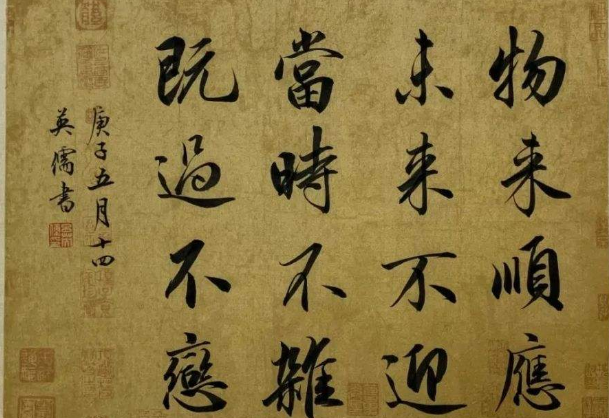 物来順應
未来不迎
當時不雜
既過不戀
庚子五月十四
英儒書